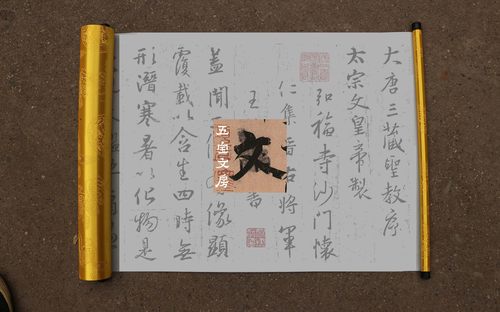 大唐三藏聖教序
太宗文皇帝製
弘福寺沙門懷
仁集晉右將軍
王
書
文
五
文房
蓋聞二
像顯
覆載以含生四時無
形潛寒暑以化物是